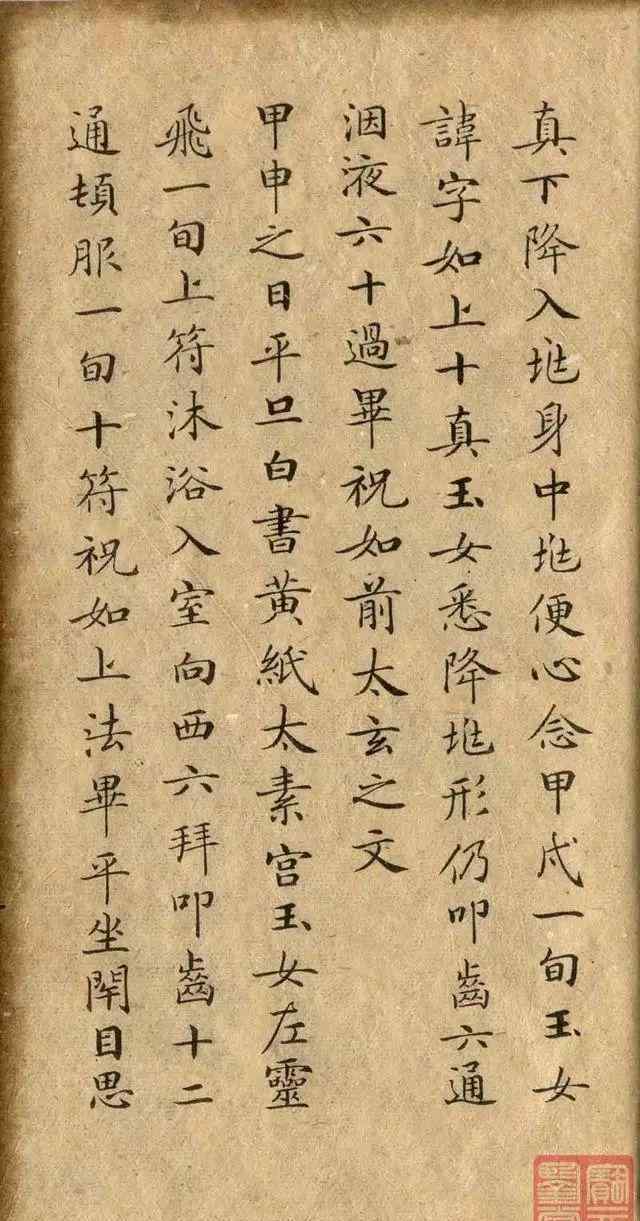 真下降入地身中地便心念甲戌一旬玉女
諱字如上十真玉女悉降地形仍叩齒六通
洇液六十過畢祝如前太玄之文
甲申之日平旦白書黃紙太素宮玉女左靈
飛一旬上符沐浴入室向西六拜叩齒十二
通頓服一旬十符祝如上法畢平坐閇目思